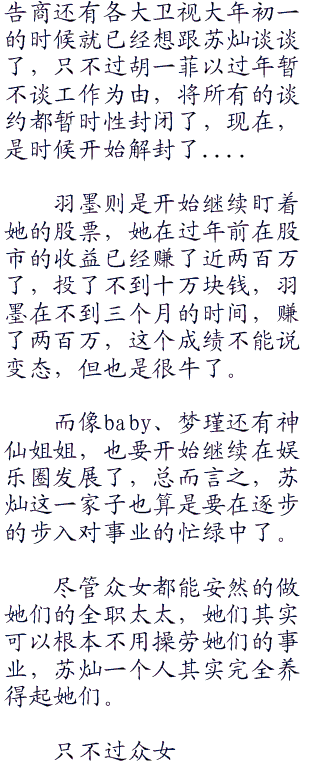 告商还有各大卫视大年初一
的时候就已经想跟苏灿谈谈
了，只不过胡一菲以过年暂
不谈工作为由，将所有的谈
约都暂时性封闭了，现在，
是时候开始解封了....
羽墨则是开始继续盯着
她的股票，她在过年前在股
市的收益已经赚了近两百万
了，投了不到十万块钱，羽
墨在不到三个月的时间，赚
了两百万，这个成绩不能说
变态，但也是很牛了。
而像baby、梦瑾还有神
仙姐姐，也要开始继续在娱
乐圈发展了，总而言之，苏
灿这一家子也算是要在逐步
的步入对事业的忙绿中了。
尽管众女都能安然的做
她们的全职太太，她们其实
可以根本不用操劳她们的事
业，苏灿一个人其实完全养
得起她们。
只不过众女